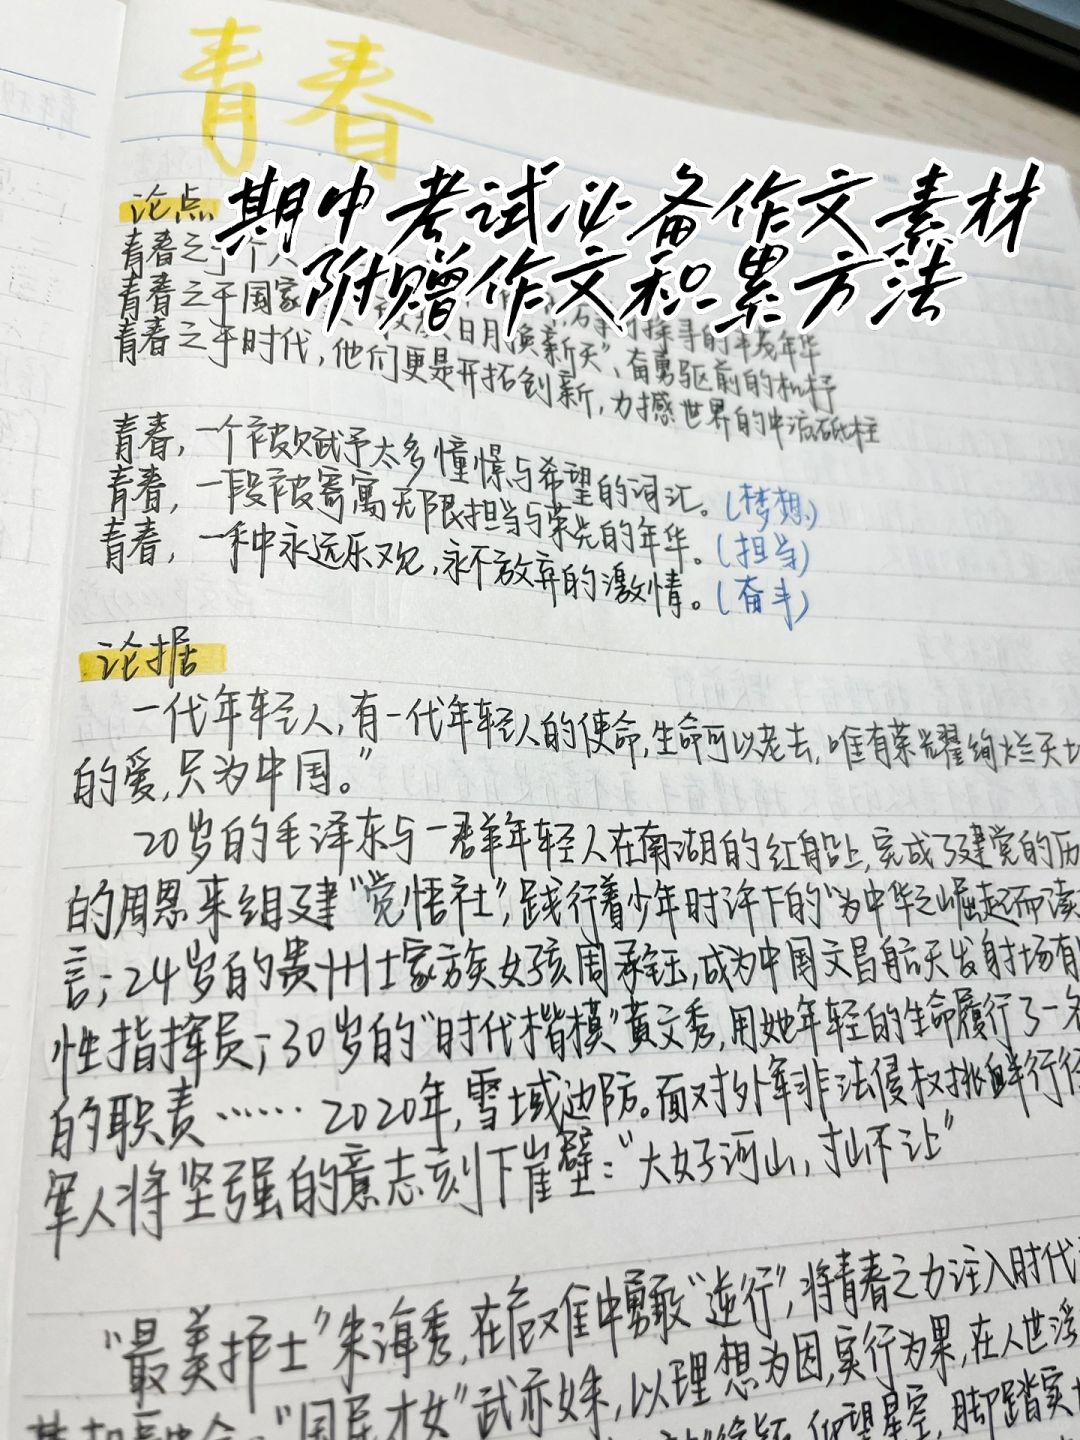 青春
期中考试必备作文素材
附赠作文积累方法
论点
青春之于个人
青春之于国家 日月换新天”、奋勇驱前的
青春之于时代，他们更是开拓创新，力撼世界的中流砥柱
青春，一个被赋予太多憧憬与希望的词汇。（梦想）
青春，一段被寄寓无限担当与荣光的年华。（担当）
青春，一种永远乐观，永不放弃的激情。（奋斗）
论据
一代年轻人，有一代年轻人的使命，生命可以老去，唯有荣耀绚烂天
的爱，只为中国。”
20岁的毛泽东与一群年轻人在南湖的红船上，完成了建党的历
的周恩来组建“觉悟社”，践行着少年时许下的“为中华之崛起而读
言；24岁的贵州土家族女孩周承钰，成为中国文昌航天发射场有
性指挥员；30岁的“时代楷模”黄文秀，用她年轻的生命履行了一名
的职责……2020年，雪域边防。面对外军非法侵权挑衅行径
军人将坚强的意志刻下崖壁：“大好河山，寸土不让”
“最美护士”朱海秀，在危难中勇敢“逆行”，将青春之力注入时代
“国民才女”武亦姝，以理想为因，实行为果，在人世浮
仰望星空，脚踏实